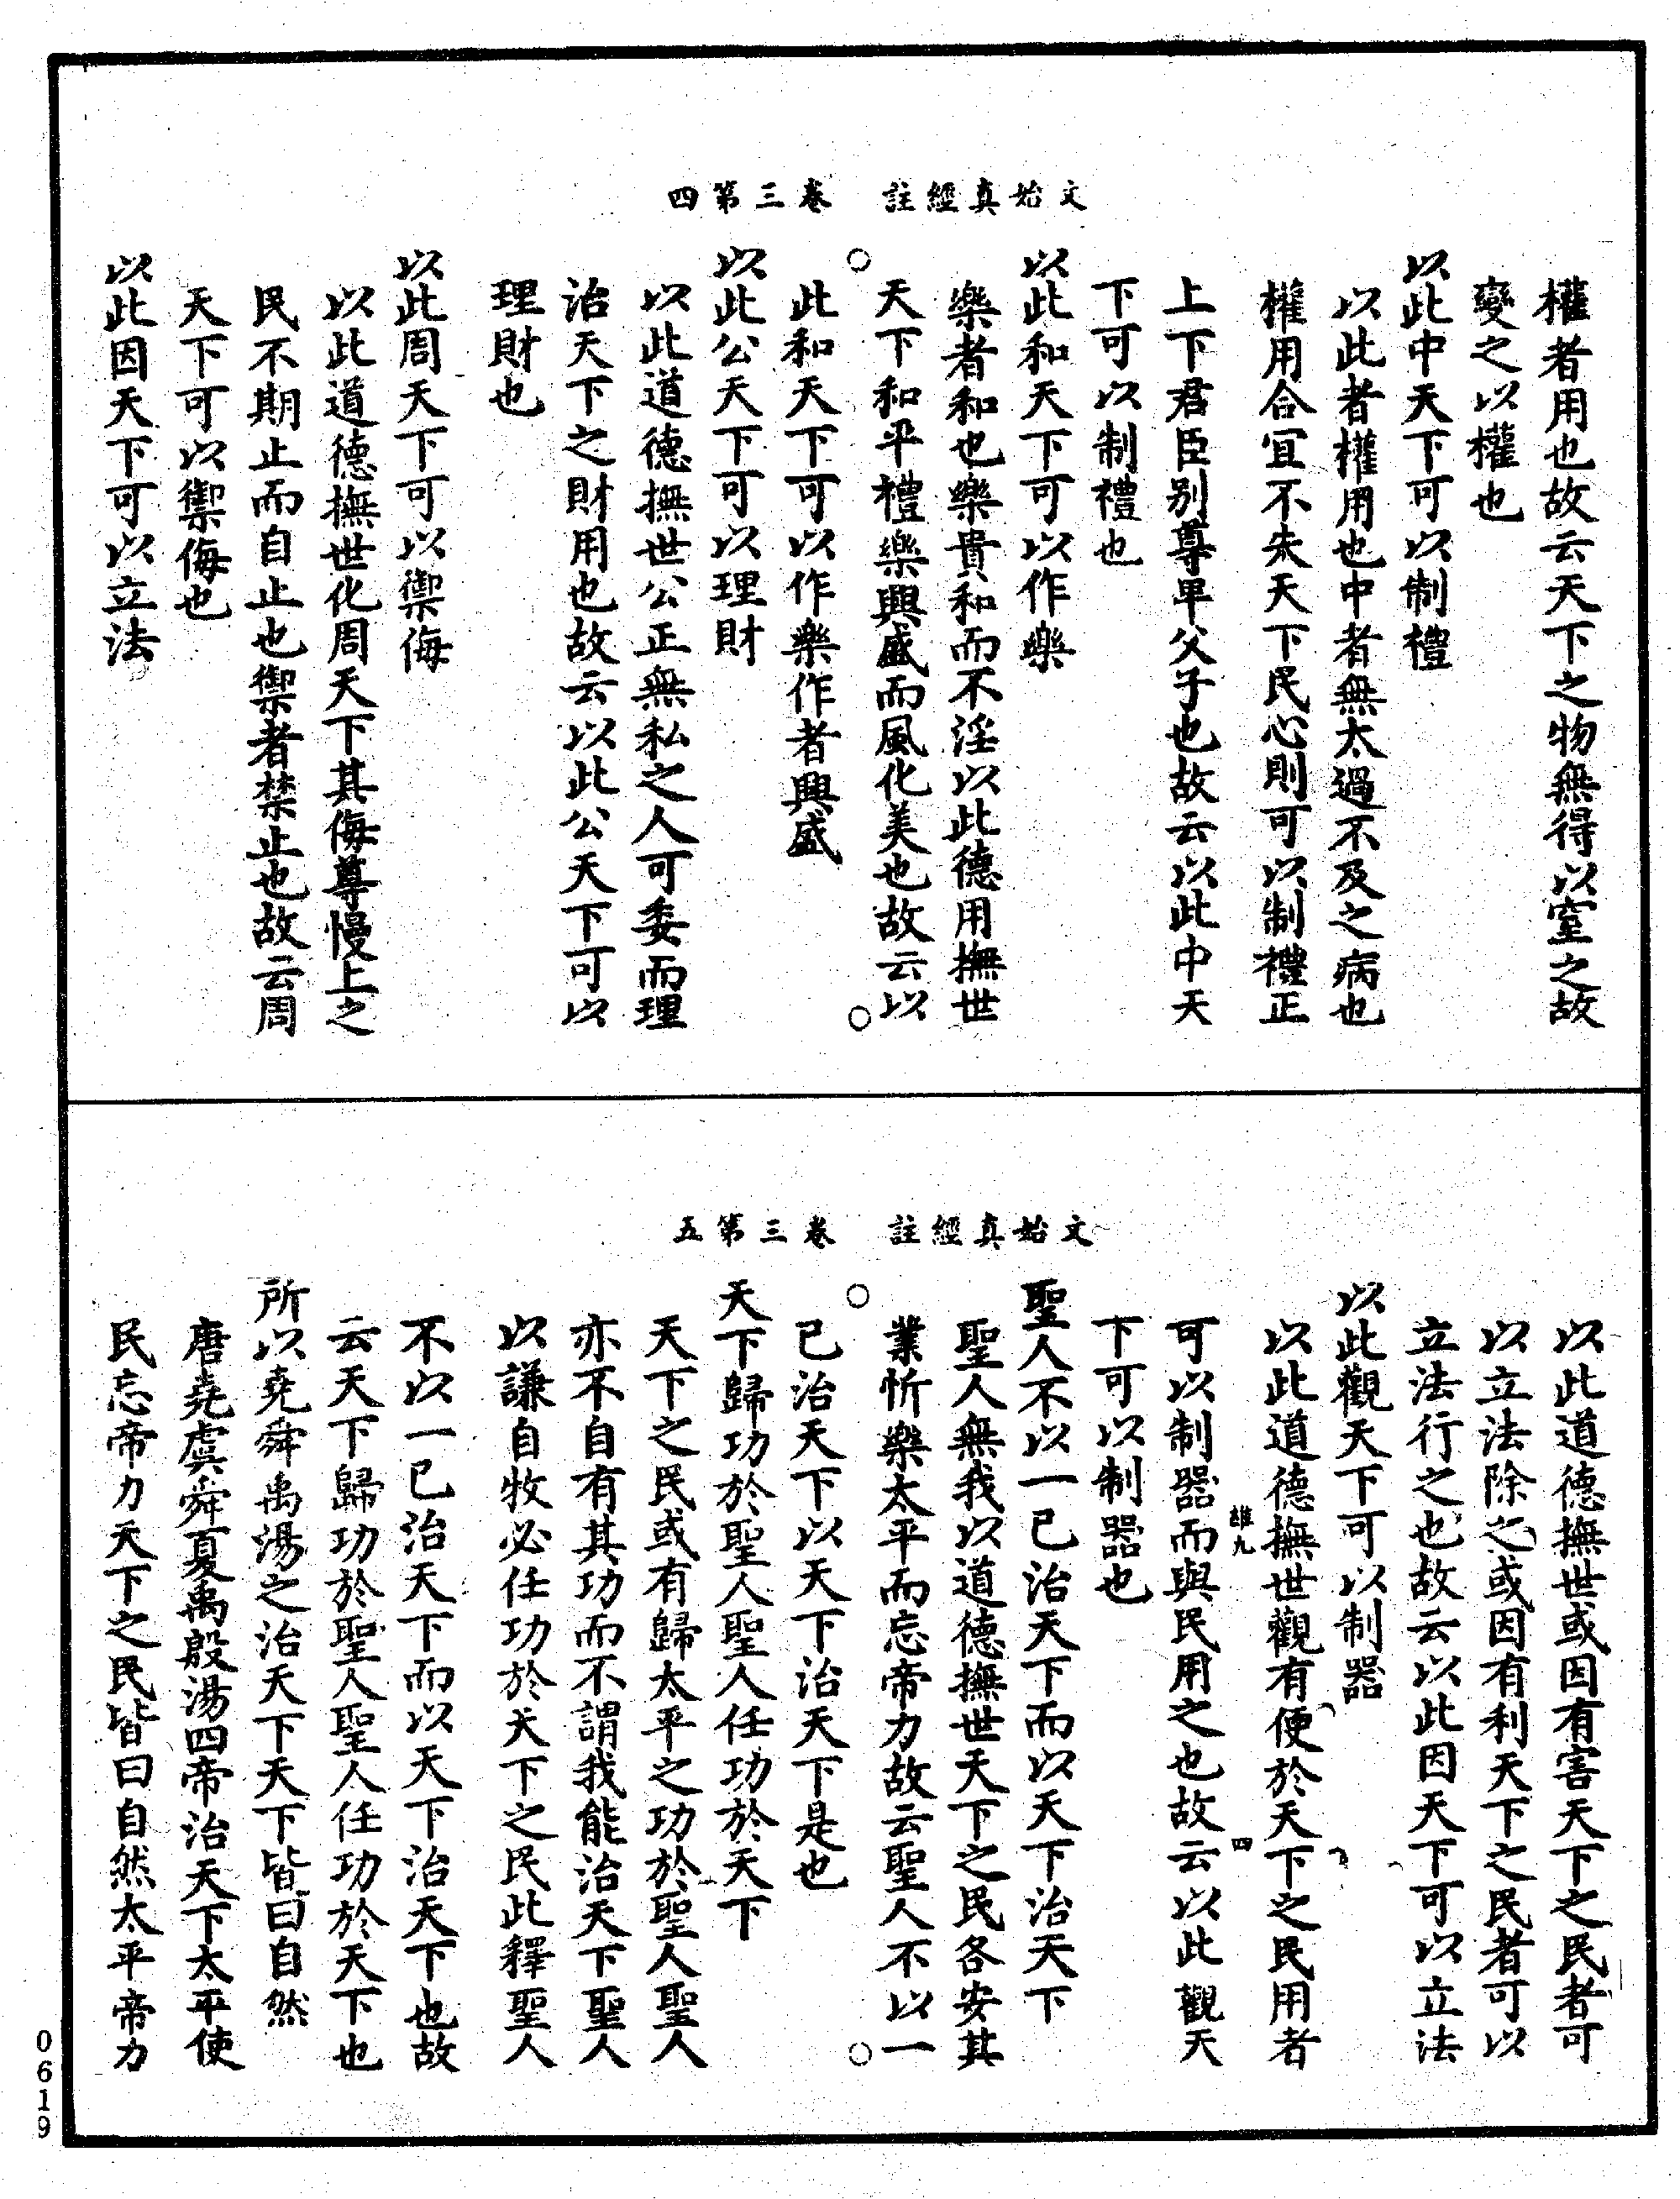 文始真經註　卷三第四
權者用也故云天下之物無得以窒之故
變之以權也
以此中天下可以制禮
以此者權用也中者無太過不及之病也
權用合宜不失天下民心則可以制禮正
上下君臣別尊卑父子也故云以此中天
下可以制禮也
以此和天下可以作樂
樂者和也樂貴和而不淫以此德用撫世
天下和平禮樂興盛而風化美也故云以
此和天下可以作樂作者興盛
以此公天下可以理財
以此道德撫世公正無私之人可委而理
治天下之財用也故云以此公天下可以
理財也
以此周天下可以禦侮
以此道德撫世化周天下其侮尊慢上之
民不期止而自止也禦者禁止也故云周
天下可以禦侮也
以此因天下可以立法
文始真經註　卷三第五
以此道德撫世或因有害天下之民者可
以立法除之或因有利天下之民者可以
立法行之也故云以此因天下可以立法
以此觀天下可以制器
以此道德撫世觀有便於天下之民用者
雄九　四
可以制器而與民用之也故云以此觀天
下可以制器也
聖人不以一己治天下而以天下治天下
聖人無我以道德撫世天下之民各安其
業忻樂太平而忘帝力故云聖人不以一
己治天下以天下治天下是也
天下歸功於聖人聖人任功於天下
天下之民或有歸太平之功於聖人聖人
亦不自有其功而不謂我能治天下聖人
以謙自牧必任功於天下之民此釋聖人
不以一己治天下而以天下治天下也故
云天下歸功於聖人聖人任功於天下也
所以堯舜禹湯之治天下天下皆曰自然
唐堯虞舜夏禹殷湯四帝治天下太平使
民忘帝力天下之民皆曰自然太平帝力
0619